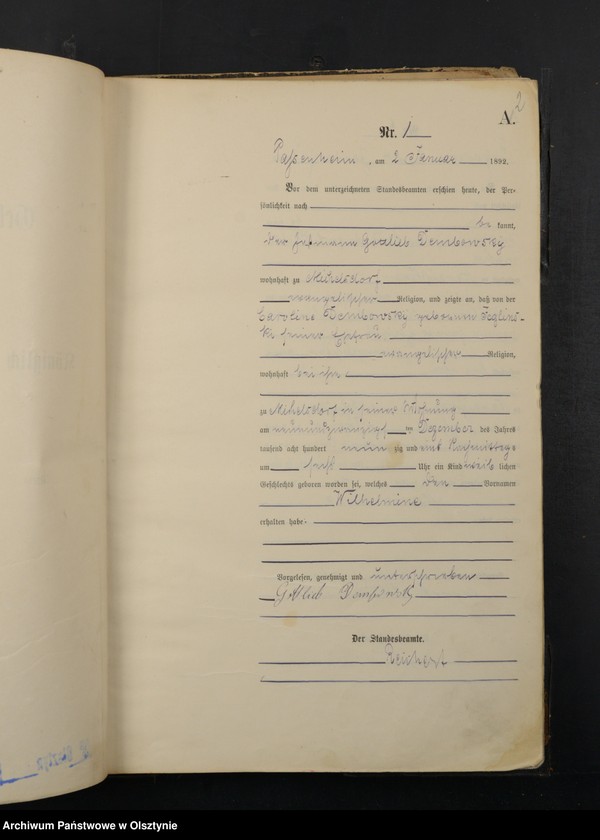 2
A.
Nr. 1
Passenheim, am 2 Januar 1892.
Vor dem unterzeichneten Standesbeamten erschien heute, der Per-
sönlichkeit nach
be kannt,
der Gottlieb Dembowsky
wohnhaft zu Michelsdorf
evangelischer Religion, und zeigte an, daß von der
Caroline Dembowsky geborenen Teglins-
ki seiner Ehefrau
evangelischer Religion,
wohnhaft bei ihm
zu Michelsdorf in seiner Wohnung
am neunundzwanzigsten Dezember des Jahres
tausend acht hundert neun zig und eins Nachmittags
um fünf Uhr ein Kind weib lichen
Geschlechts geboren worden sei, welches den Vornamen
Wilhelmine
erhalten habe.
Vorgelesen, genehmigt und unterschrieben
Gottlieb
Der Standesbeamte.
Reichert
Archiwum Państwowe w Olsztynie